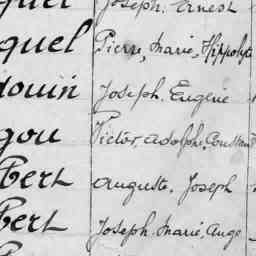 Joseph Ernest
quel Pierre, Marie, Hippolyte
douin Joseph. Eugénie
gou Victor, Adolphe, Constant
bert Auguste, Joseph
bert Joseph. Marie, Ange